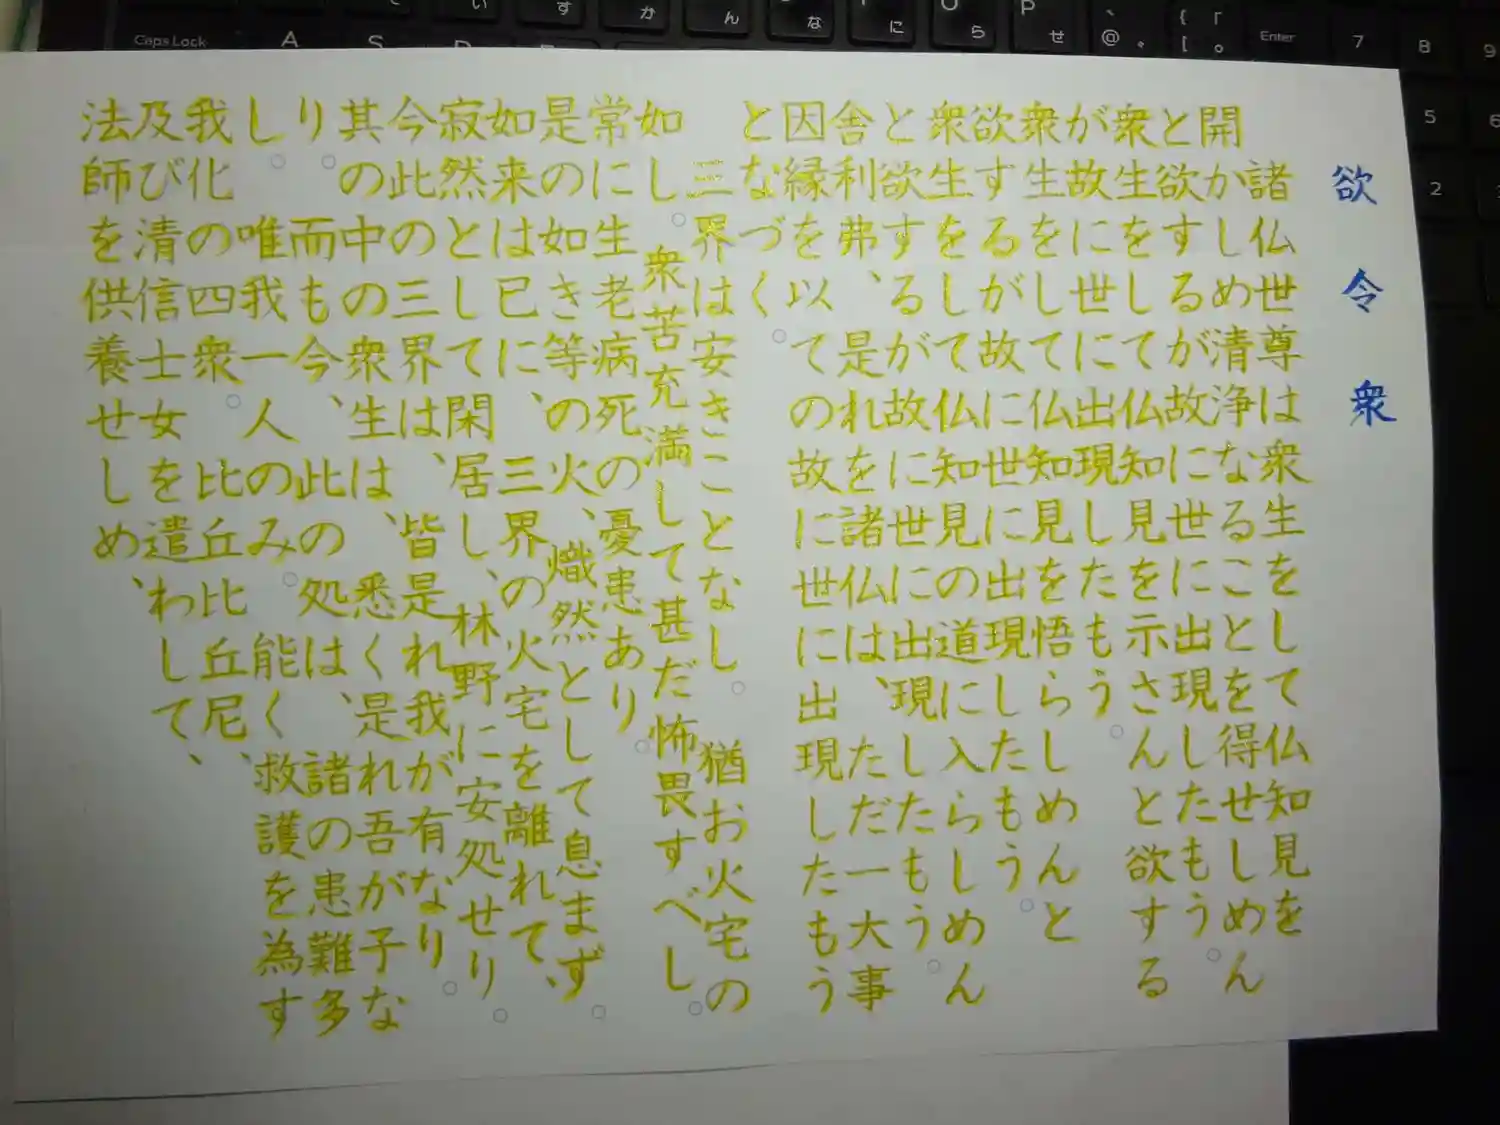 欲令衆
諸仏世尊は衆生をして仏知見を
開かしめ清浄なることを得せしめん
と欲するが故に世に出現したもう。
衆生をして仏知見を示さんと欲する
が故に世に出現したもう。
衆生をして仏知見を悟らしめんと
欲するが故に世に出現したもう。
衆生をして仏知見の道に入らしめん
と欲するが故に世に出現したもう。
舎利弗、是れを諸仏は、ただ一大事
因縁を以ての故に世に出現したもう
となづく。
三界は安きことなし。猶お火宅の
如し。衆苦充満して甚だ怖畏すべし。
常に生老病死の憂患あり。
是の如き等の火、熾然として息まず。
如来は已に、三界の火宅を離れて、
寂然として閑居し、林野に安処せり。
今此の三界は、皆是れ我が有なり。
其の中の衆生は、悉く是れ吾が子な
り。而も今、此の処は、諸の患難多
し。唯我一人のみ。能く救護を為す
我化の四衆。比丘比丘尼、
及び清信士女を遣わして、
法師を供養せしめ、
Caps Lock
A
S
D
い
す
か
ん
な
に
ら
P
せ
@
Enter
7
8
9
5
6
2